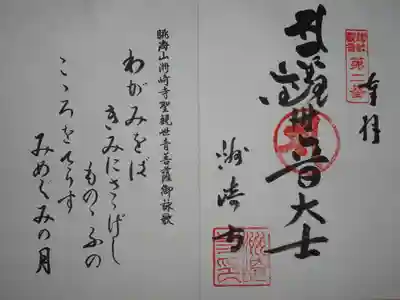 奉拝
聖観世音大士
洲崎寺
眺海山洲崎寺聖観世音菩薩御詠歌
わがみをば
きみにさゝげし
ものゝふの
こゝろをてらす
みめぐみの月